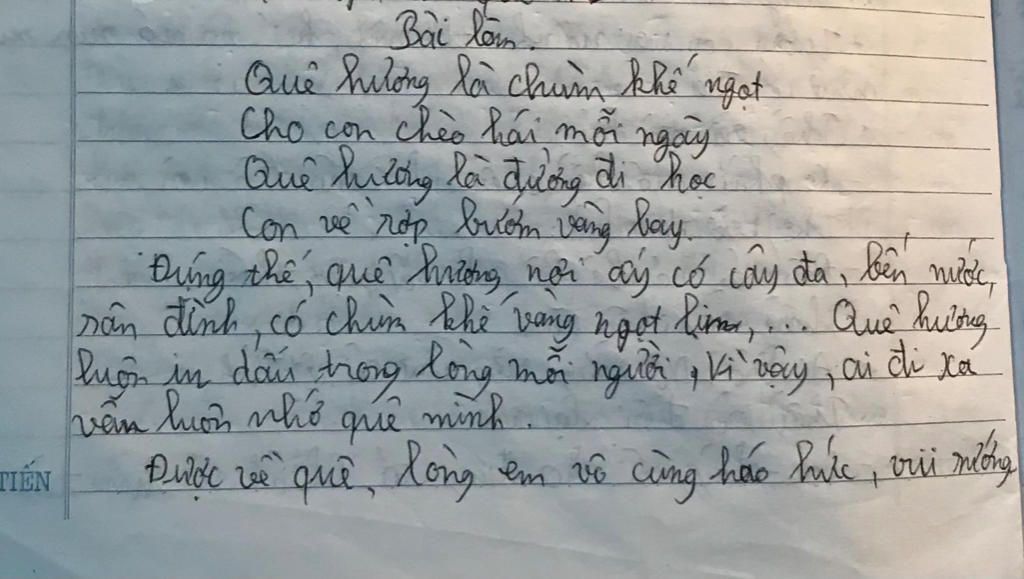 Bài làm.
Quê hương là chùm khế ngọt
Cho con chèo hái mỗi ngày
Quê hương là đường đi học
Con về rợp bướm vàng bay.
Đúng thế, quê hương nơi ấy có cây đa, bến nước,
sân đình, có chùm khế vàng ngọt lịm, ... Quê hương
luôn in dấu trong lòng mỗi người, vì vậy, ai đi xa
vẫn luôn nhớ quê mình.
TIẾN
Được về quê, lòng em vô cùng háo hức, vui sướng